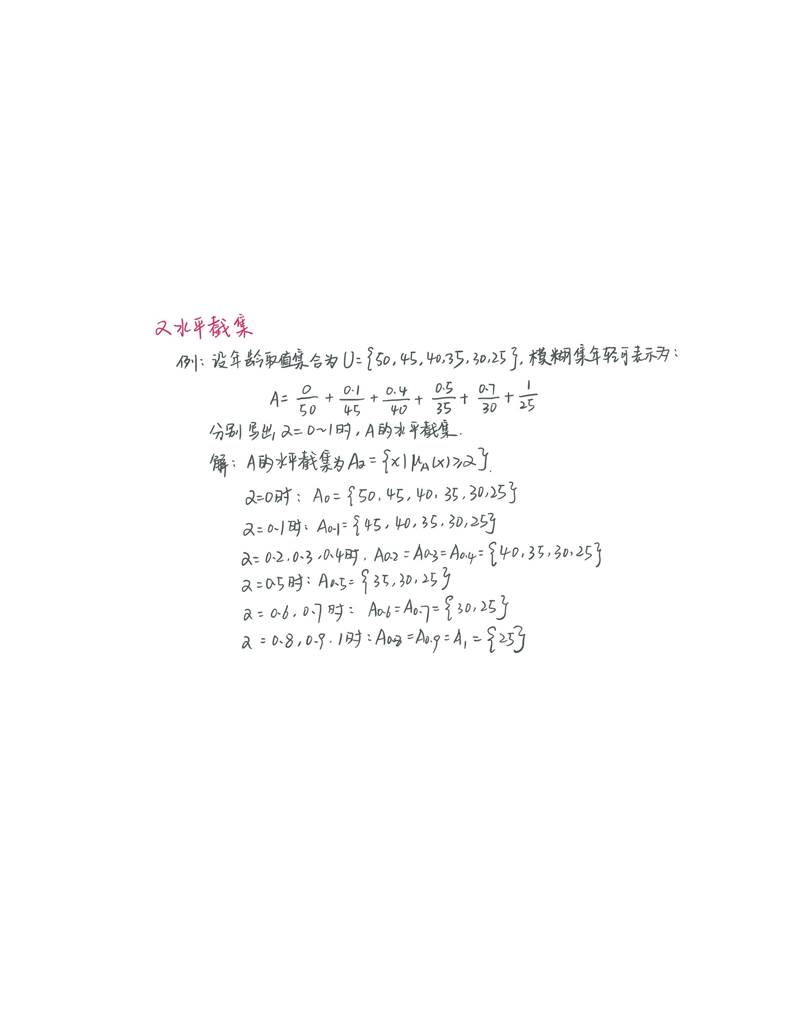 α水平截集
例：设年龄取值集合为U={50,45,40,35,30,25}，模糊集年轻可表示为：
A=0/50+0.1/45+0.4/40+0.5/35+0.7/30+1/25
分别写出α=0~1时，A的水平截集．
解：A的水平截集为Aα={x|μA(x)≥α}．
α=0时：A0={50,45,40,35,30,25}
α=0.1时：A0.1={45,40,35,30,25}
α=0.2,0.3,0.4时．A0.2=A0.3=A0.4={40,35,30,25}
α=0.5时：A0.5={35,30,25}
α=0.6,0.7时：A0.6=A0.7={30,25}
α=0.8,0.9.1时：A0.8=A0.9=A1={25}